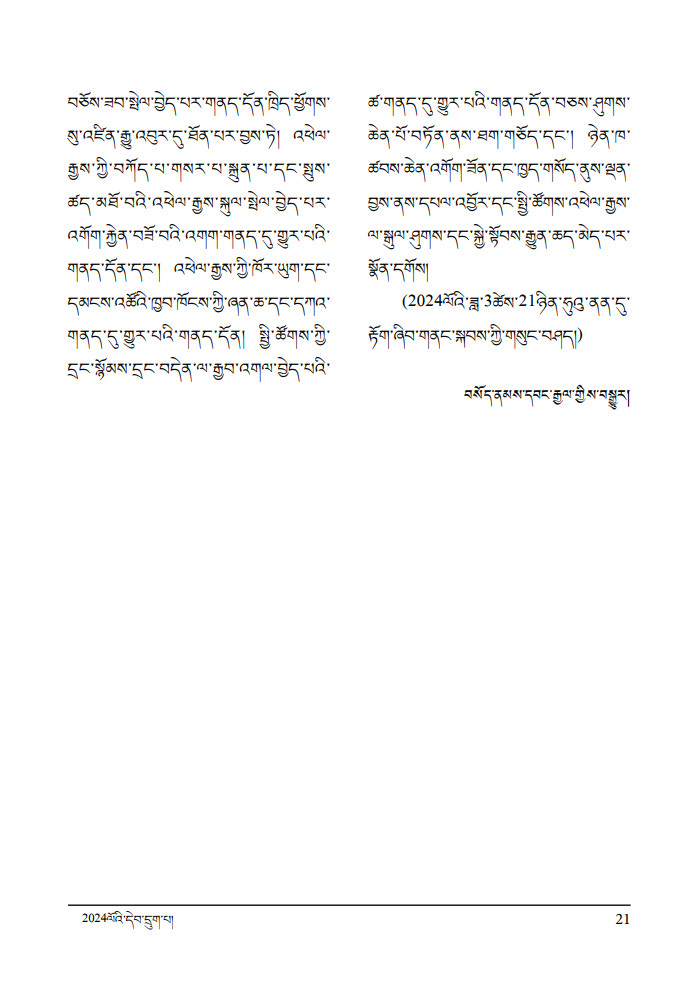 བཅོས་ཟབ་སྤེལ་བྱེད་པར་གནད་དོན་ཁྲིད་ཕྱོགས་
སུ་འཛིན་རྒྱུ་འབུར་དུ་ཐོན་པར་བྱས་ཏེ། འཕེལ་
རྒྱས་ཀྱི་བཀོད་པ་གསར་པ་སྐྲུན་པ་དང་སྤུས་
ཚད་མཐོ་བའི་འཕེལ་རྒྱས་སྐུལ་སྤེལ་བྱེད་པར་
འགོག་རྐྱེན་བཟོ་བའི་འགག་གནད་དུ་གྱུར་པའི་
གནད་དོན་དང་། འཕེལ་རྒྱས་ཀྱི་ཁོར་ཡུག་དང་
དམངས་འཚོའི་ཁྱབ་ཁོངས་ཀྱི་ཞན་ཆ་དང་དཀའ་
གནད་དུ་གྱུར་པའི་གནད་དོན། སྤྱི་ཚོགས་ཀྱི་
དྲང་སྙོམས་དྲང་བདེན་ལ་རྒྱབ་འགལ་བྱེད་པའི་
ཚ་གནད་དུ་གྱུར་པའི་གནད་དོན་བཅས་ཤུགས་
ཆེན་པོ་བཏོན་ནས་ཐག་གཅོད་དང་། ཉེན་ཁ་
ཚབས་ཆེན་འགོག་ཟོན་དང་ཁྱད་གསོད་ནུས་ལྡན་
བྱས་ནས་དཔལ་འབྱོར་དང་སྤྱི་ཚོགས་འཕེལ་རྒྱས་
ལ་སྒུལ་ཤུགས་དང་སྐྱེ་སྟོབས་རྒྱུན་ཆད་མེད་པར་
སྣོན་དགོས།
(2024ལོའི་ཟླ་3ཚེས་21ཉིན་ཧུའུ་ནན་དུ་
རྟོག་ཞིབ་གནང་སྐབས་ཀྱི་གསུང་བཤད།)
བསོད་ནམས་དབང་རྒྱལ་གྱིས་བསྒྱུར།
2024ལོའི་དེབ་དྲུག་པ།
21